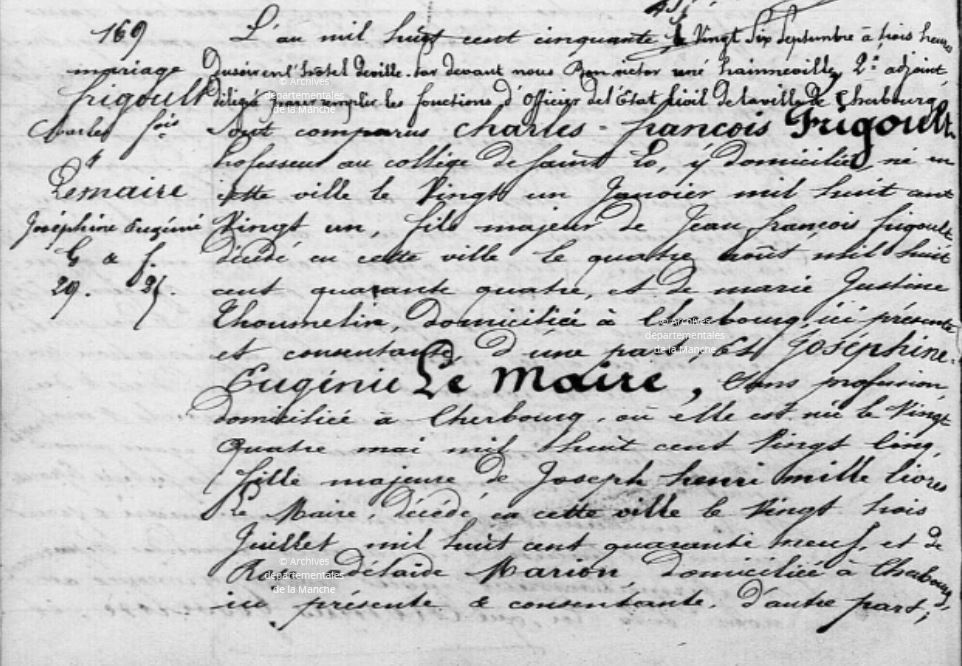 169
mariage
frigoult
Charles fois
&
Lemaire
Joséphine Eugénie
G & f.
29. 25.
L'an mil huit cent cinquante le Vingt Six Septembre à trois heures
Du soir en l'hôtel deville. Par devant nous Bon victor rené hainneville, 2e adjoint
délégué pour remplir les fonctions d'Officier del'Etat Civil delaville de Cherbourg,
Sont comparus Charles-françois Frigoult
Professeur au collège de Saint Lo, y domicilié, né en
cette ville le Vingt un Janvier mil huit cent
Vingt un, fils majeur de Jean françois frigoult
décédé en cette ville le quatre août mil huit
cent quarante quatre, et de marie Justine
Thoumelin, domiciliée à Cherbourg, ici présente
et consentante, d'une part, Et Joséphine-
Eugénie Le Maire, Sans profession,
domiciliée à Cherbourg, où elle est née le Vingt
Quatre mai mil huit cent Vingt Cinq,
fille majeure de Joseph henri mille livres
Le Maire, décédé en cette ville le Vingt trois
Juillet mil huit cent quarante neuf, et de
adélaide Marion, domiciliée à Cherbourg,
ici présente & consentante, d'autre part;
© Archives
départementales
de la Manche
© Archives
départementales
de la Manche
© Archives
départementales
de la Manche